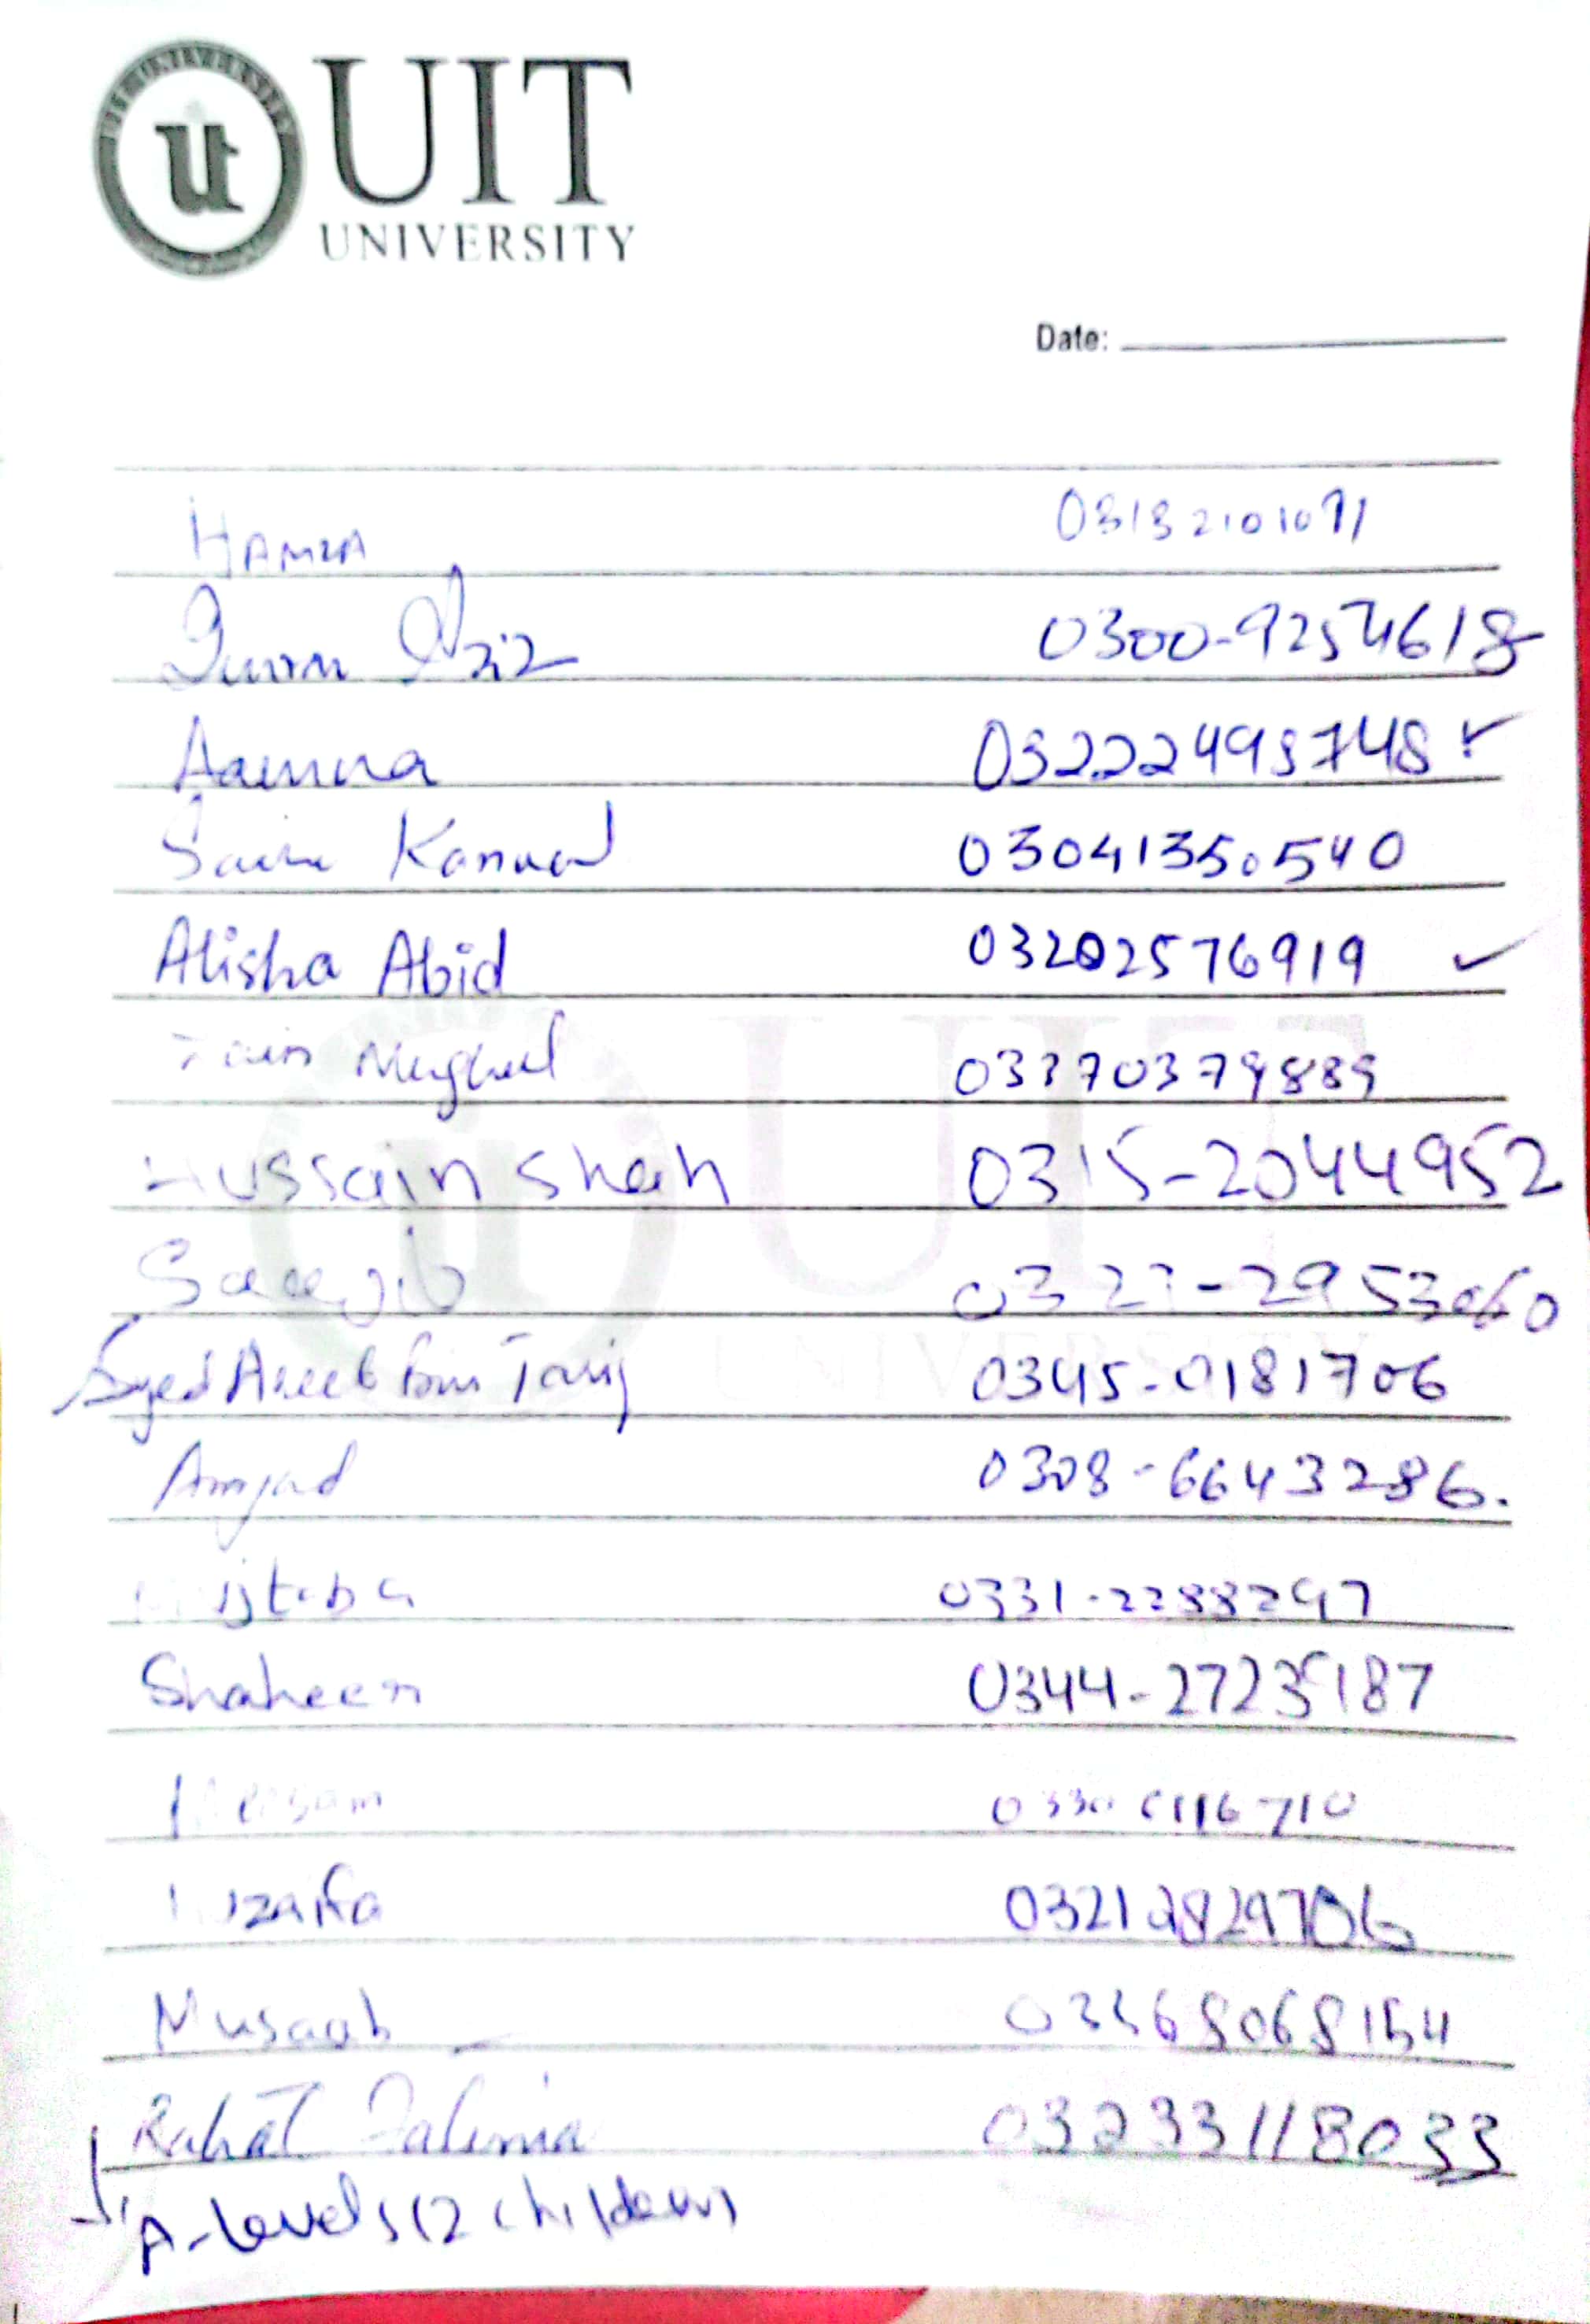 UIT
UNIVERSITY
Date:
HAMZA 03132101091
Aziz 0300-9254618
Aamna 03222493748 ✓
Kanwal 03041350540
Alisha Abid 03202576919 ✓
Mughal 03370379889
Hussain Shah 0315-2044952
0323-2953060
Syed Areeb Bin Tariq 0345-0181706
Amjad 0308-6643286.
Mujtaba 0331-2288297
Shaheen 0344-2723187
Meesam
Huzaifa 03212829706
Musaab 03368068154
Rahat Fatima 03233118033
A-levels (2 children)